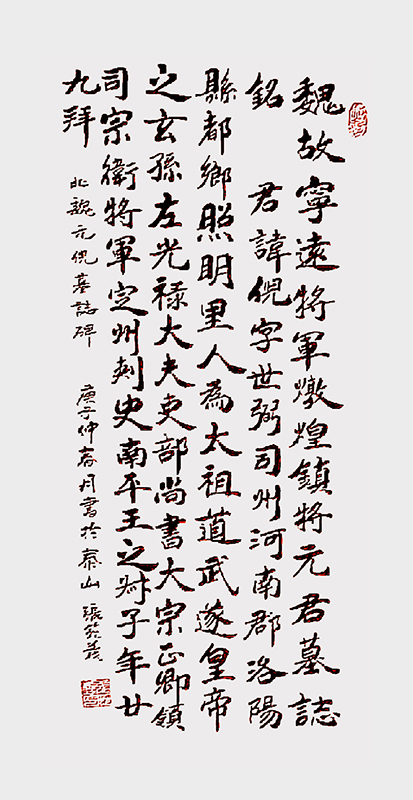 魏故寧遠將軍燉煌鎮將元君墓誌
銘 君諱倪字世弼司州河南郡洛陽
縣都鄉照明里人為太祖道武遂皇帝
之玄孫左光禄大夫吏部尚書大宗正卿領
司宗衛將軍定州刺史南平王之叔子年廿
九拜
北魏元倪墓誌碑 庚子仲春月書於泰山 張